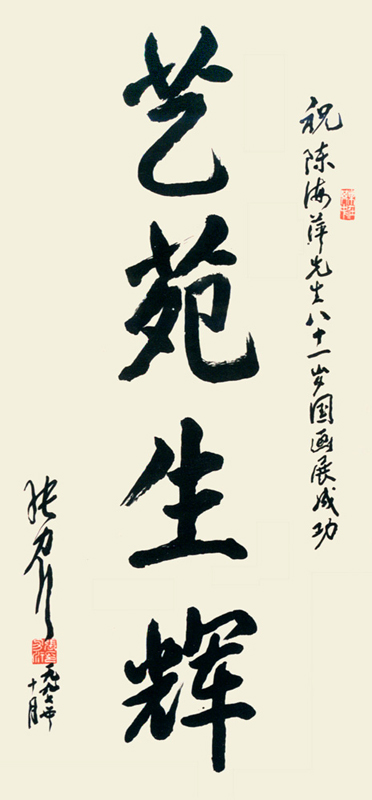 祝陈海萍先生八十一岁国画展成功
艺苑生辉
一九九七年
十月